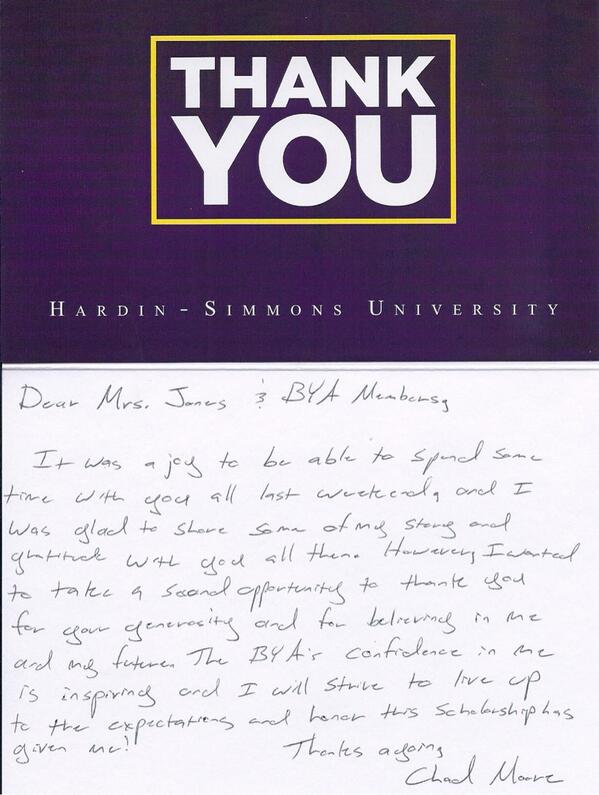 THANK
YOU
HARDIN-SIMMONS UNIVERSITY
Dear Mrs. Jones & BYA Members,
It was a joy to be able to spend some
time with you all last weekend, and I
was glad to share some of my story and
gratitude with you all then. However, I wanted
to take a second opportunity to thank you
for your generosity and for believing in me
and my future. The BYA's confidence in me
is inspiring and I will strive to live up
to the expectations and honor this Scholarship has
given me!
Thanks again,
Chad Moore